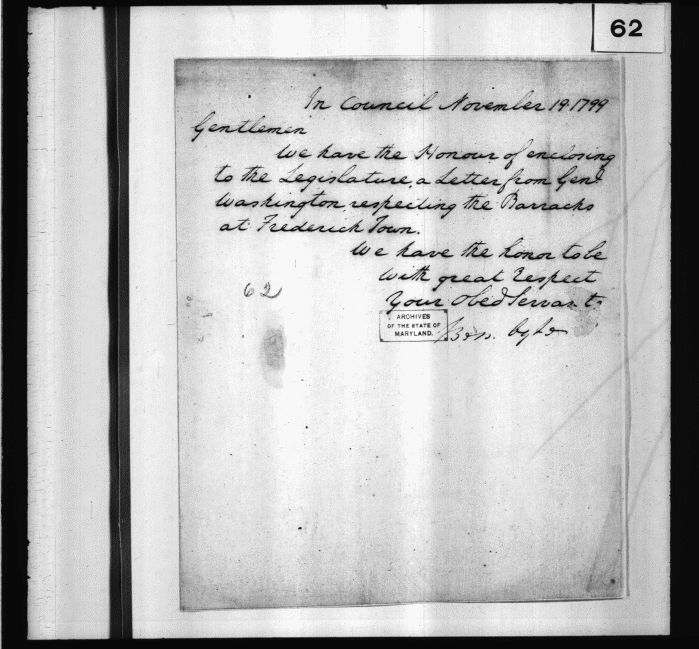 62
In Council November 19 1799
Gentlemen
We have the Honour of enclosing
to the Legislature, a Letter from Genl.
Washington, respecting the Barracks
at Frederick Town.
We have the honor to be
with great Respect
Your Obed Servants
62
ARCHIVES
OF THE STATE OF
MARYLAND.
Ben. Ogle